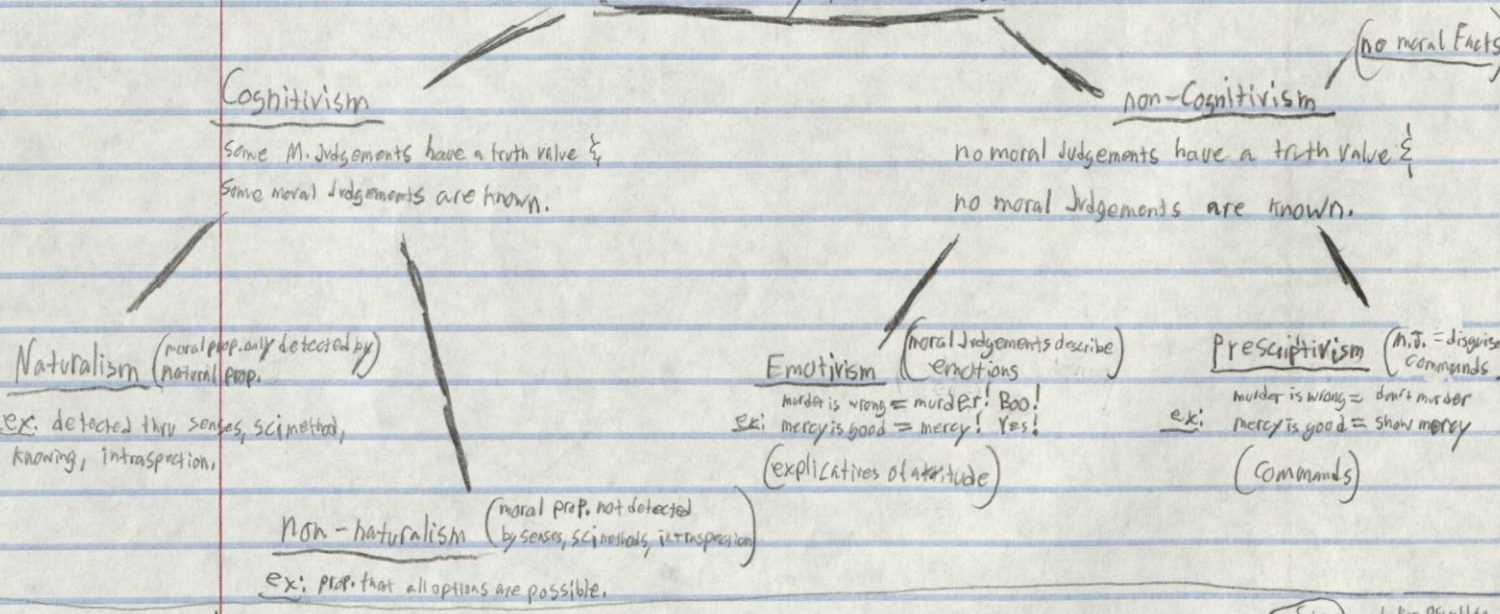 (no moral Facts)
Cognitivism
non-Cognitivism
Some M. Judgements have a truth value &
Some moral Judgements are known.
no moral Judgements have a truth value &
no moral Judgements are known.
Naturalism (moral prop. only detected by
natural prop.)
ex: detected thru senses, sci method,
knowing, intraspection.
non-naturalism (moral prop. not detected
by senses, sci methods, intraspection)
ex: prop. that all options are possible.
Emotivism (moral Judgements describe
emotions)
murder is wrong = murder! Boo!
ex: mercy is good = mercy! Yes!
(explicatives of attitude)
Prescriptivism (m.J. = disguise
commands
murder is wrong = don't murder
ex: mercy is good = show mercy
(commands)